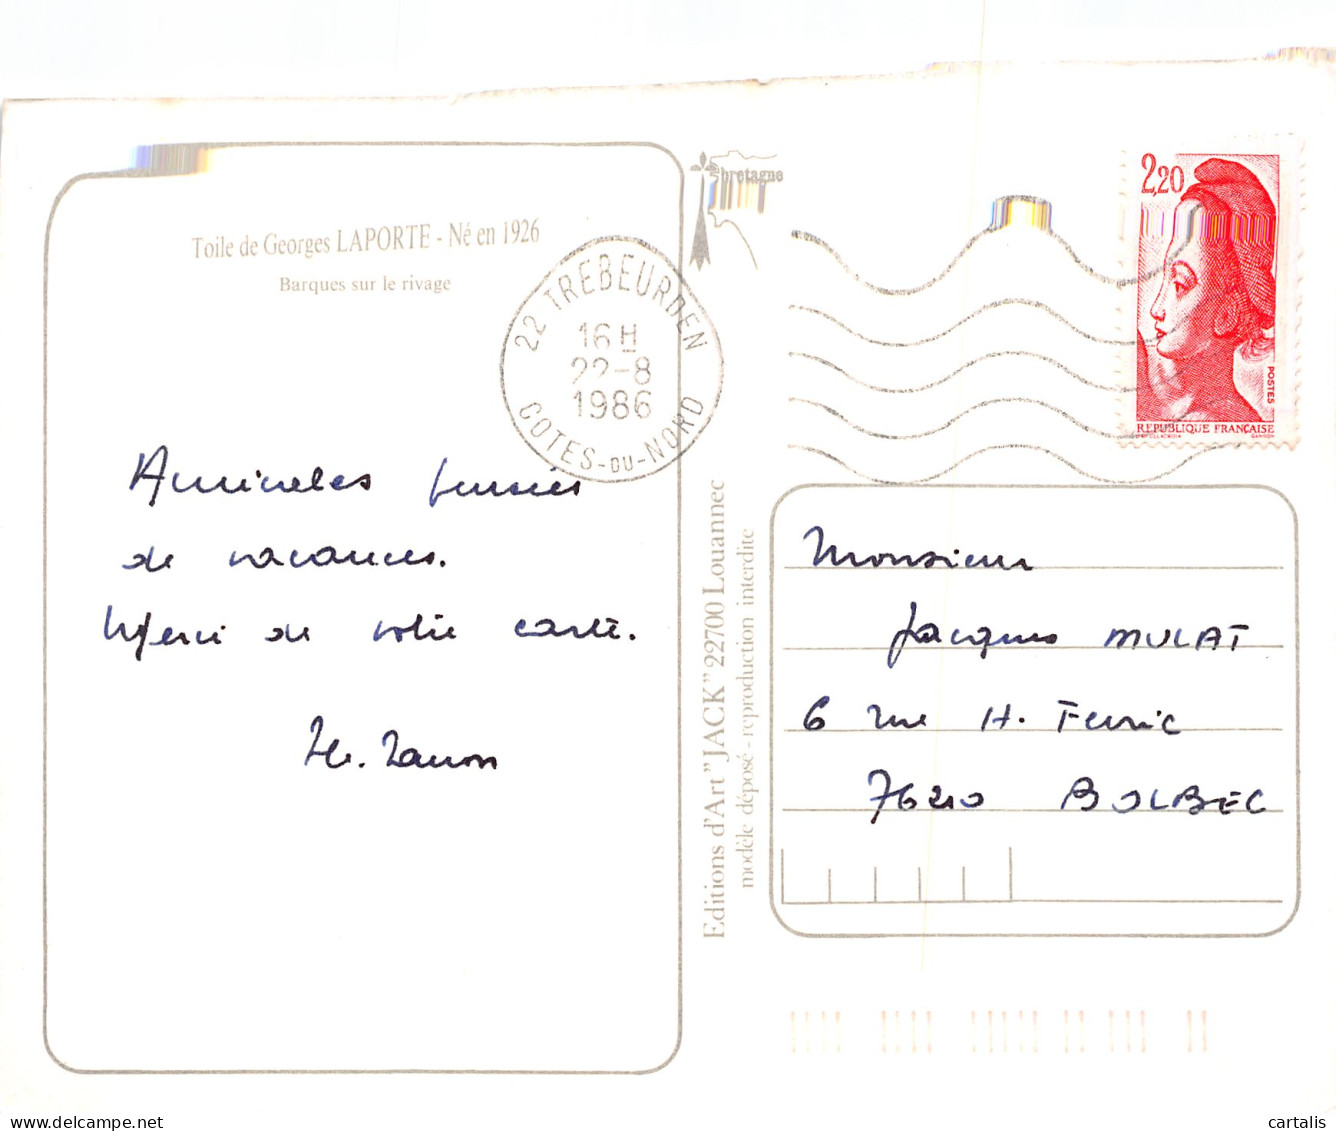 Toile de Georges LAPORTE - Né en 1926
Barques sur le rivage
bretagne
22 TREBEURDEN
16 H
22-8
1986
COTES-DU-NORD
2,20
POSTES
REPUBLIQUE FRANÇAISE
GANDON
Amicales pensées
de vacances.
Merci de votre carte.
Editions d'Art "JACK" 22700 Louannec
modèle déposé - reproduction interdite
Monsieur
Jacques MULAT
6 rue H.
76210 BOLBEC
cartalis